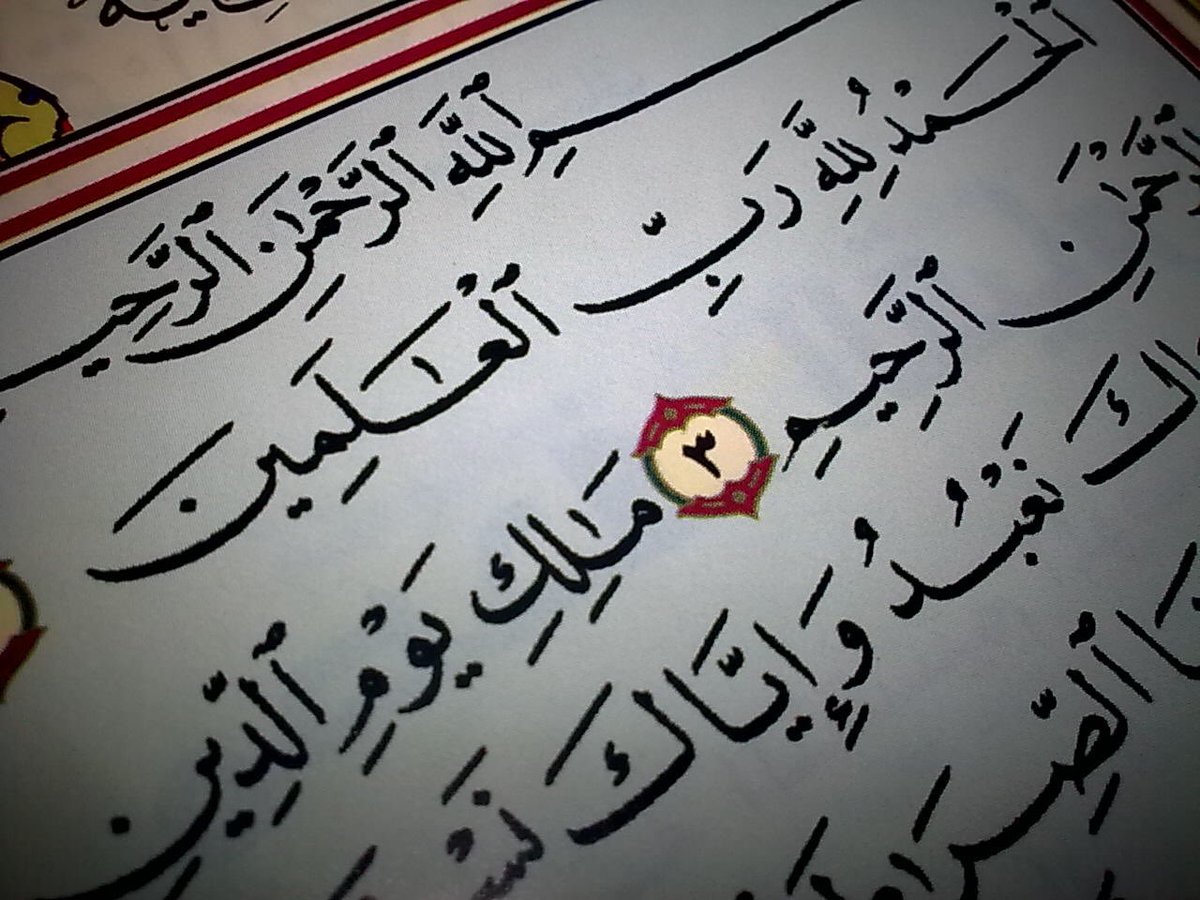 ـسْمِ ٱللَّهِ ٱلرَّحْمَـٰنِ ٱلرَّحِيـ
ٱلْحَمْدُ لِلَّهِ رَبِّ ٱلْعَـٰلَمِينَ
ٱلرَّحْمَـٰنِ ٱلرَّحِيمِ ٣ مَـٰلِكِ يَوْمِ ٱلدِّينِ
ـاكَ نَعْبُدُ وَإِيَّاكَ نَسْـ
ـنَا ٱلصِّرَٰطَ